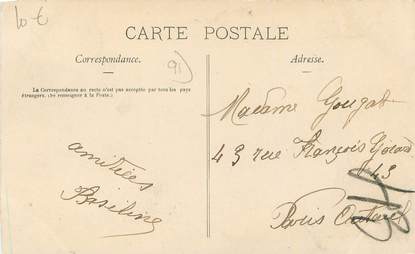 10 €
CARTE POSTALE
Correspondance.
91
Adresse.
La Correspondance au recto n'est pas acceptée par tous les pays
étrangers. (Se renseigner à la Poste.)
amitiées
Basiline
Madame Gougat
43 rue François Gérard
43
Paris